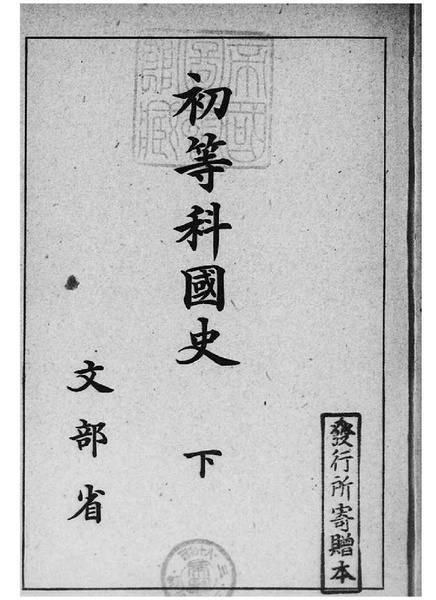 發行所寄贈本
初等科國史 下
文部省